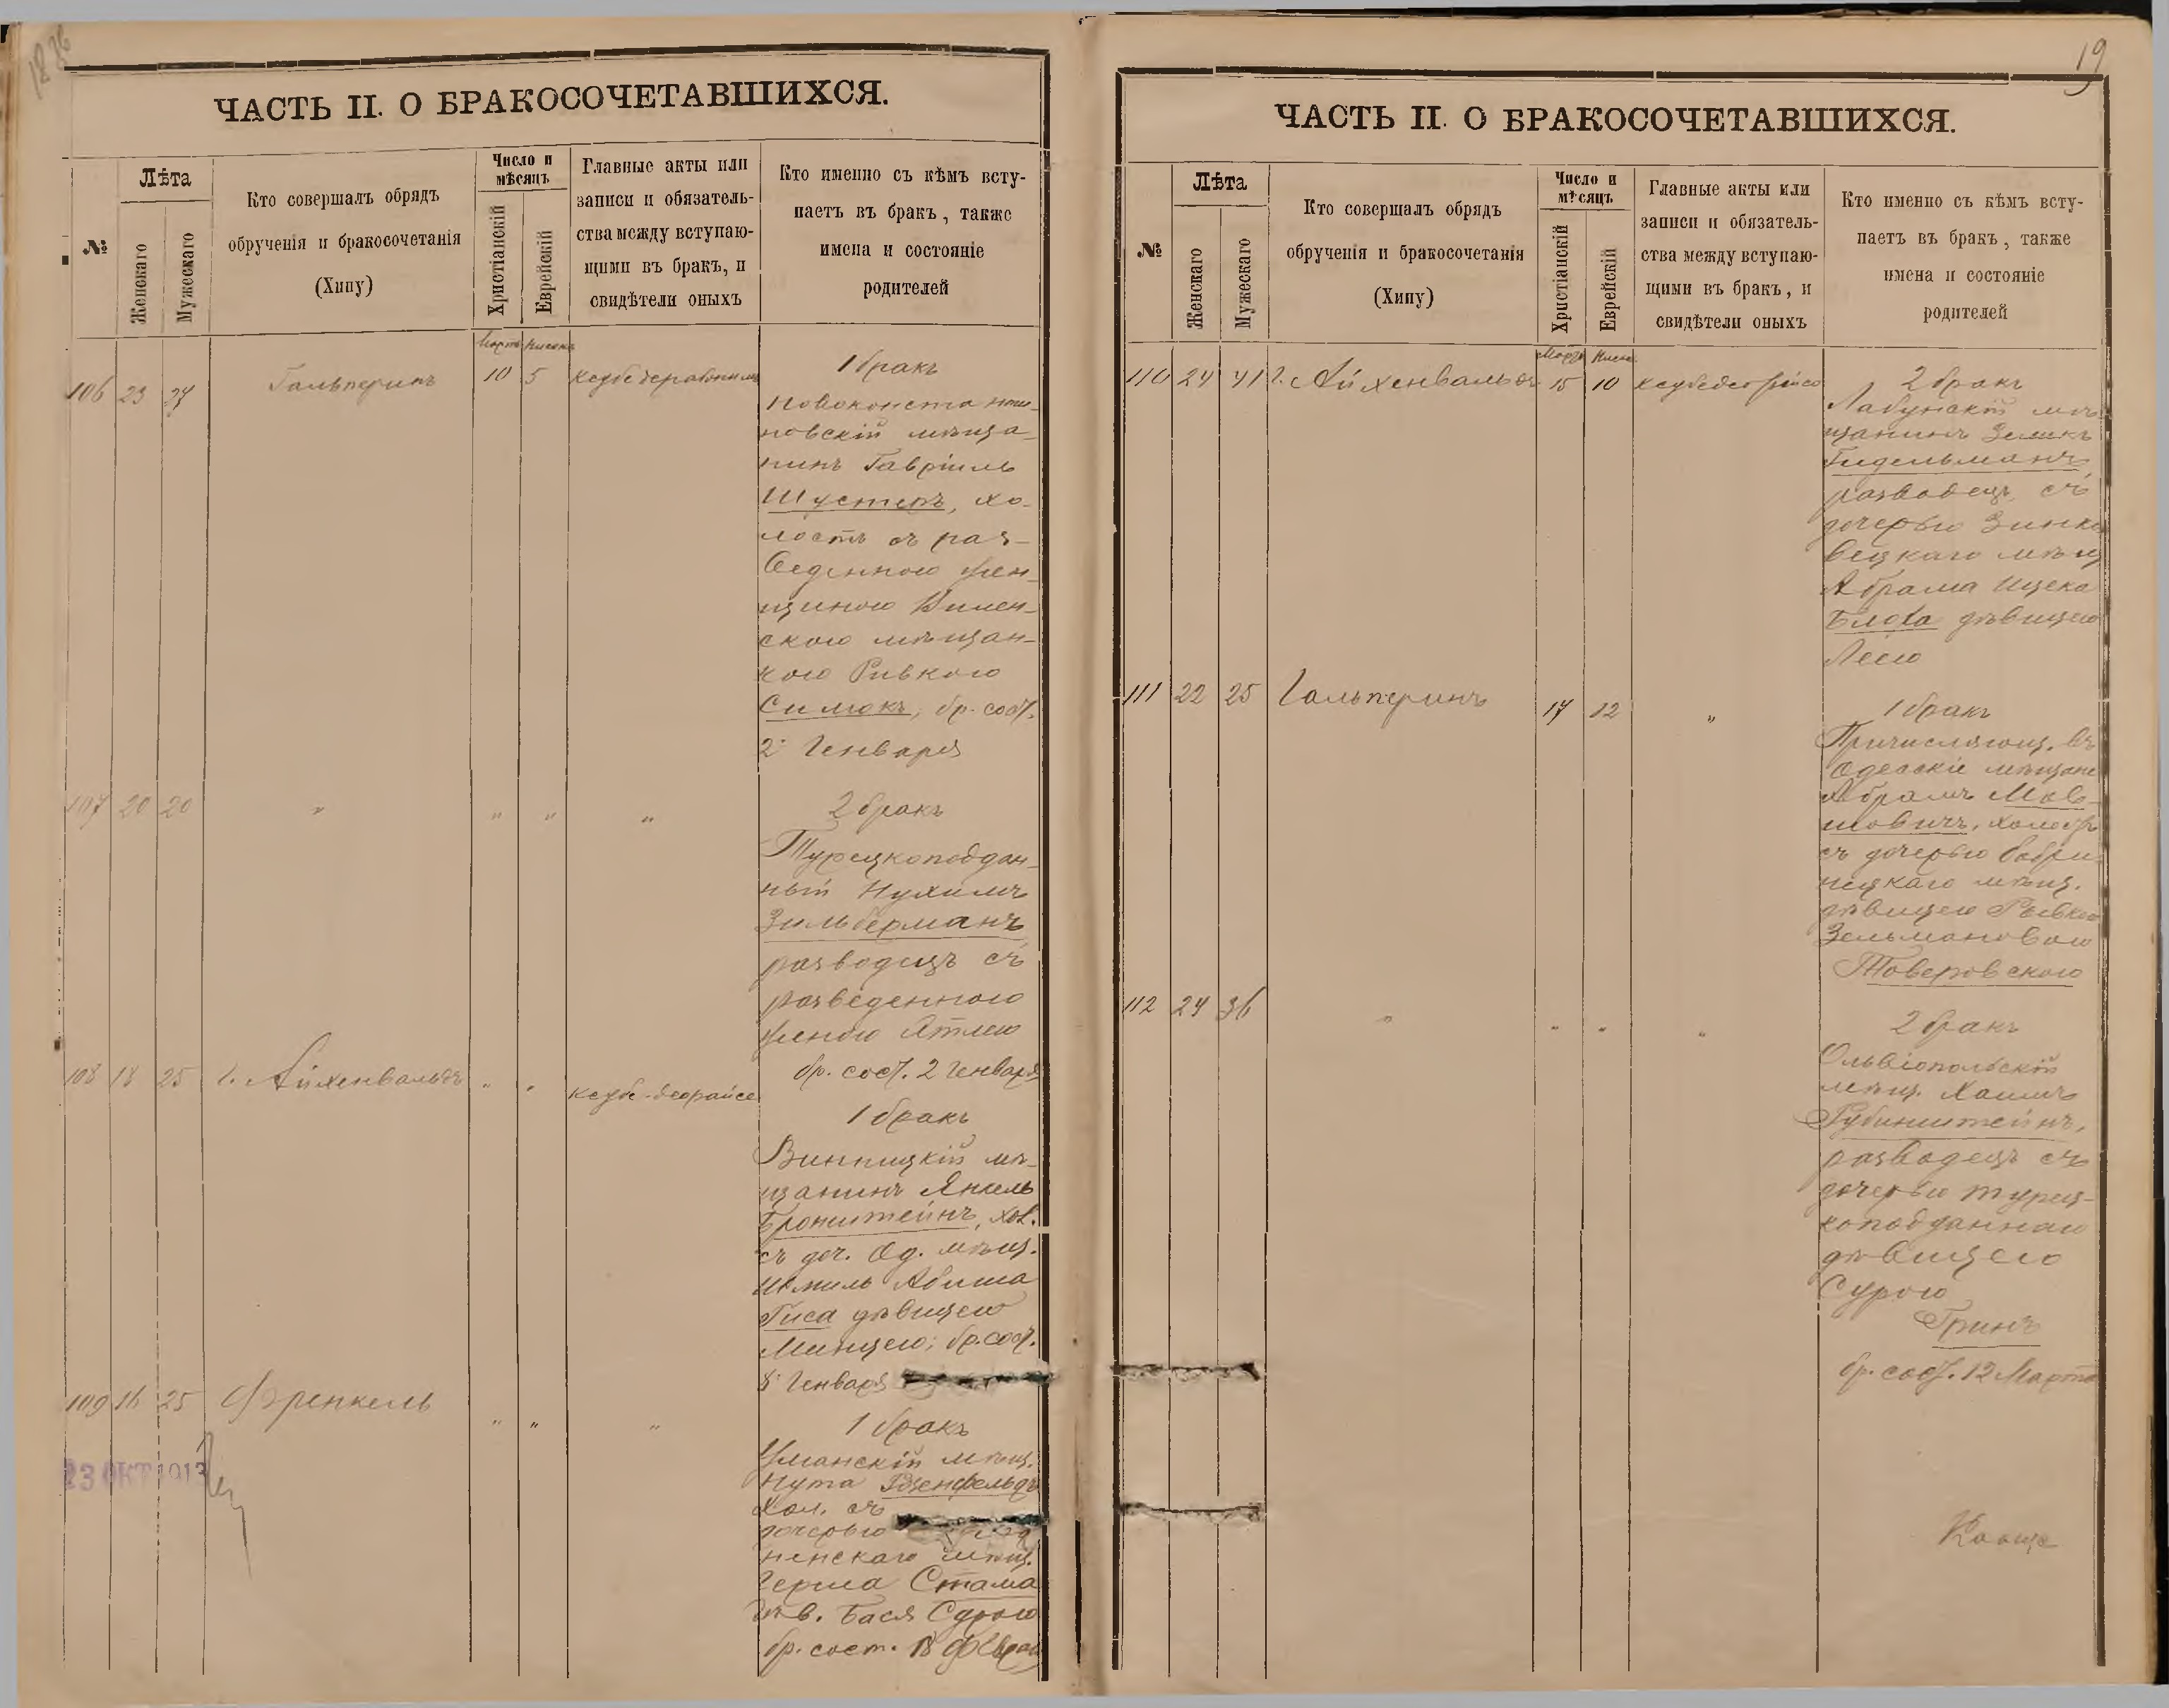 19
ЧАСТЬ II. О БРАКОСОЧЕТАВШИХСЯ.
№
Лѣта
Женскаго
Мужескаго
Кто совершалъ обрядъ
обрученія и бракосочетанія
(Хипу)
Число и
мѣсяцъ
Христіанскій
Еврейскій
Главные акты или
записи и обязатель-
ства между вступаю-
щими въ бракъ, и
свидѣтели оныхъ
Кто именно съ кѣмъ всту-
паетъ въ бракъ, также
имена и состояніе
родителей
Мартъ
106 23 27 Гальперинъ 10 5
1 бракъ
Новоконстанти-
новскій мѣща-
нинъ Гавріиль
Шустеръ, хо-
лостъ съ раз-
веденною жен-
щиною Вилен-
скою мѣщан-
кою Ривкою
Симокъ, бр. сост.
2 Генваря
107 20 20 " " " "
2 бракъ
Турецкоподдан-
ный Нухимъ
Зильберманъ
разводецъ съ
разведенною
женою Этлею
бр. сост. 2 Генваря
108 18 25 Г. Айхенвальдъ " " Ксубе-деорайсе
1 бракъ
Винницкій мѣ-
щанинъ Янкель
Бронштейнъ, хол.
съ доч. Од. мѣщ.
Шмиль Абиша
Гиса дѣвицею
Минцею; бр. сост.
8 Генваря
109 16 25 Френкель " " "
1 бракъ
Уманскій мѣщ.
Нута Эзенфельдъ
хол. съ
дочерью
ненскаго мѣщ.
Герша Стама
дѣв. Бася Сурою
бр. сост. 18 Февраля
23 ОКТ 1913
ЧАСТЬ II. О БРАКОСОЧЕТАВШИХСЯ.
№
Лѣта
Женскаго
Мужескаго
Кто совершалъ обрядъ
обрученія и бракосочетанія
(Хипу)
Число и
мѣсяцъ
Христіанскій
Еврейскій
Главные акты или
записи и обязатель-
ства между вступаю-
щими въ бракъ, и
свидѣтели оныхъ
Кто именно съ кѣмъ всту-
паетъ въ бракъ, также
имена и состояніе
родителей
Мартъ
110 24 41 Г. Айхенвальдъ 15 10
2 бракъ
Лабунскій мѣ-
щанинъ Зеликъ
Гидельманъ,
разводецъ съ
дочерью Зинко
вецкаго мѣщ
Абрама Ицека
Блоха дѣвицею
Леею
111 22 25 Гальперинъ 17 12 "
1 бракъ
Причисляющ. въ
Одесскіе мѣщане
Абрамъ Мов-
шовичъ, холостъ
съ дочерью Бобри-
нецкаго мѣщ.
дѣвицею Рывкою
Зельмановою
Товеровскою
112 24 36 " " " "
2 бракъ
Ольвіопольскій
мѣщ. Хаимъ
Рубинштейнъ,
разводецъ съ
дочерью турец-
коподданнаго
дѣвицею
Сурою
Гринъ
бр. сост. 12 Марта